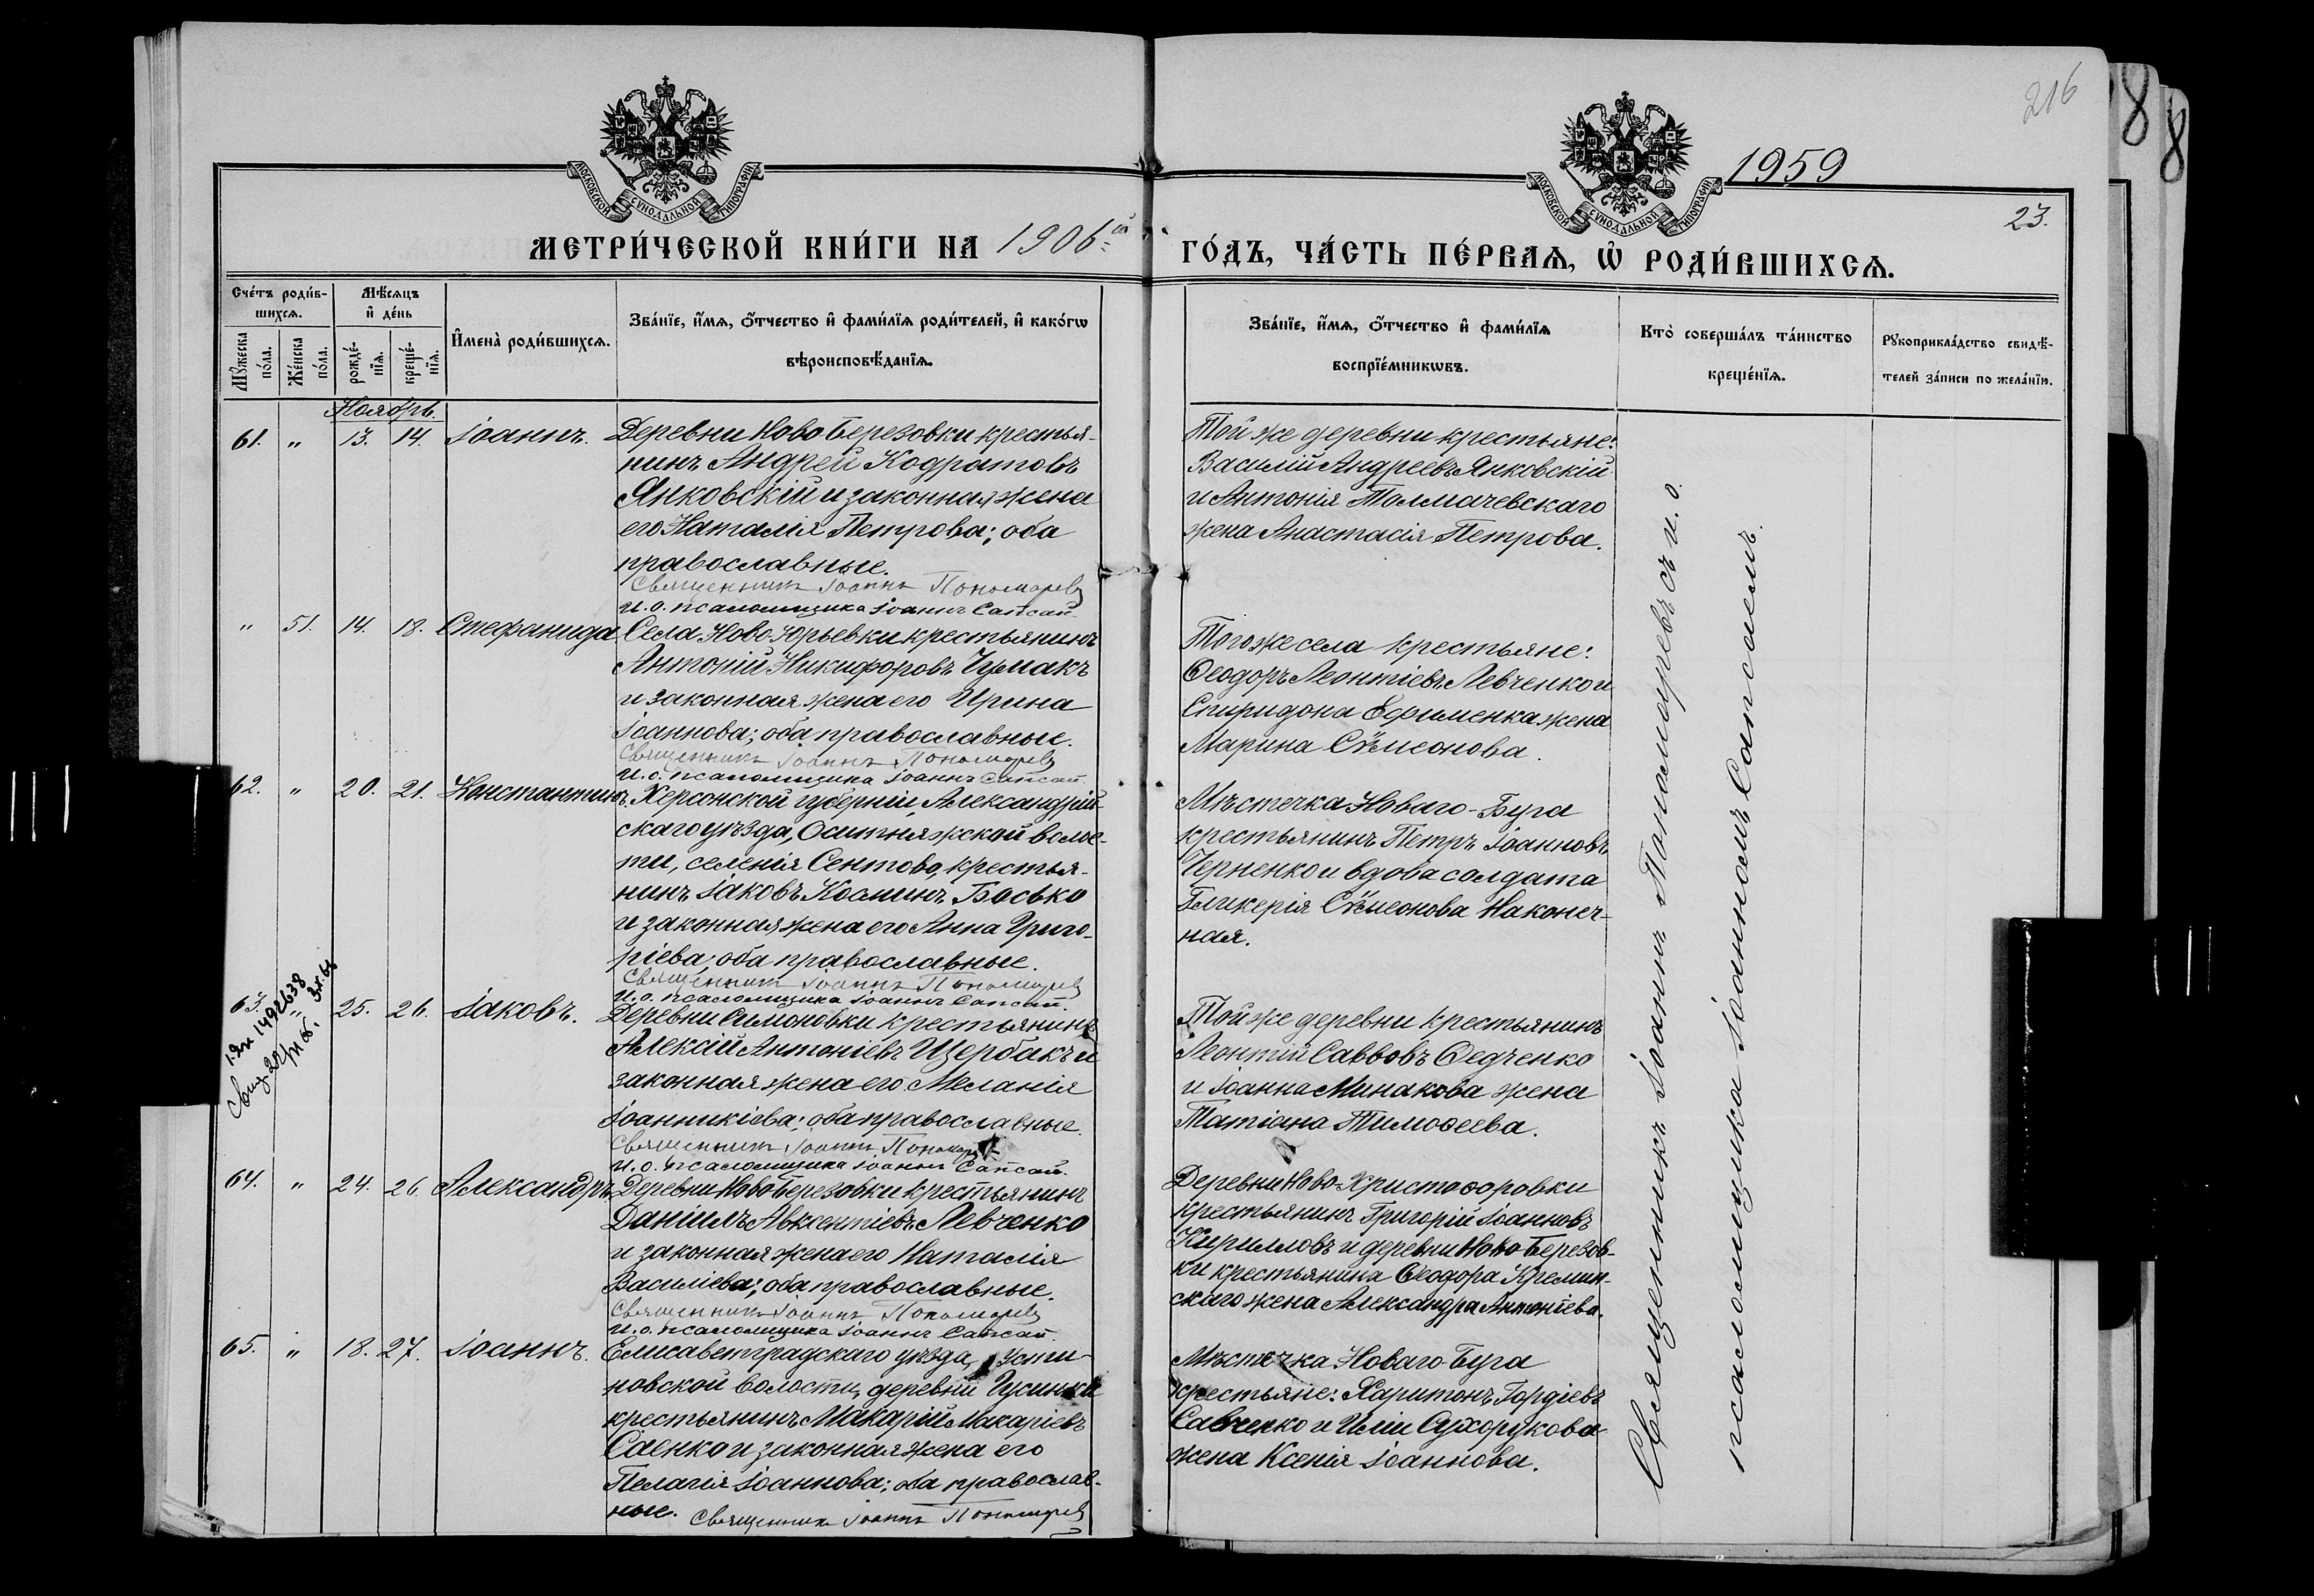 216
8
8
МОСКОВСКОЙ СѴНОДАЛЬНОЙ ТИПОГРАФІИ
МОСКОВСКОЙ СѴНОДАЛЬНОЙ ТИПОГРАФІИ
1959
23.
МЕТРИ́ЧЕСКОЙ КНИ́ГИ НА 1906й
ГО́ДЪ, ЧА́СТЬ ПЕ́РВАѦ, Ѡ҆ РОДИ́ВШИХСѦ.
Сче́тъ роди́в-
шихсѧ.
Мꙋ́жеска по́ла.
Же́нска по́ла.
Мѣ́сѧцъ
и҆ де́нь
рожде́-
нїѧ.
креще́-
нїѧ.
И҆мена̀ роди́вшихсѧ.
Зва́нїе, и҆́мѧ, ѻ҆́тчество и҆ фами́лїѧ роди́телей, и҆ како́гѡ
вѣроисповѣ́данїѧ.
Зва́нїе, и҆́мѧ, ѻ҆́тчество и҆ фами́лїѧ
воспрїе́мникѡвъ.
Кто̀ соверша́лъ та́инство
креще́нїѧ.
Рꙋкоприкла́дство свидѣ́-
телей за́писи по жела́нїю.
Ноябрь.
61. " 13. 14. Іоаннъ. Деревни Ново Березовки крестья-
нинъ Андрей Кодратовъ
Янковскій и законная жена
его Наталія Петрова; оба
православные.
Священникъ Іоаннъ Пономарев
И. о. псаломщика Іоаннъ Сапсай.
Той же деревни крестьяне:
Василій Андреевъ Янковскій
и Антонія Толмачевскаго
жена Анастасія Петрова.
" 51. 14. 18. Стефанида Села Ново Юрьевки крестьянинъ
Антоній Никифоровъ Чумакъ
и законная жена его Ирина
Іоаннова; оба православные.
Священникъ Іоаннъ Пономарев
И. о. псаломщика Іоаннъ Сапсай.
Того же села крестьяне:
Ѳеодоръ Леонтіевъ Левченко и
Спиридона Ефименка жена
Марина Сѵмеонова.
62. " 20. 21. Константинъ. Херсонской губерніи, Александрій-
скаго уѣзда, Оситняжской волос-
ти, селенія Сентово, крестья-
нинъ Іаковъ Косминъ Босько
и законная жена его Анна Григо-
ріева; оба православные.
Священникъ Іоаннъ Пономарев
И. о. псаломщика Іоаннъ Сапсай.
Мѣстечка Новаго-Буга
крестьянинъ Петръ Іоанновъ
Черненко и вдова солдата
Гликерія Сѵмеонова Наконеч-
ная.
63. " 25. 26. Іаковъ. Деревни Симоновки крестьянинъ
Алексій Антоніевъ Щербакъ и
законная жена его Меланія
Іоанникіева; оба православные.
Священникъ Іоаннъ Пономарев
И. о. псаломщика Іоаннъ Сапсай.
Той же деревни крестьянинъ
Леонтій Саввовъ Ѳедченко
и Іоанна Минакова жена
Татіана Тимоѳеева.
64. " 24. 26. Александръ. Деревни Ново Березовки крестьянинъ
Даніилъ Авксентіевъ Левченко
и законная жена его Наталія
Василіева; оба православные.
Священникъ Іоаннъ Пономарев
И. о. псаломщика Іоаннъ Сапсай.
Деревни Ново-Христофоровки
крестьянинъ Григорій Іоанновъ
Кирилловъ и деревни Ново Березов-
ки крестьянина Ѳеодора Кремин-
скаго жена Александра Антоніева.
65. " 18. 27. Іоаннъ. Елисаветградскаго уѣзда, Усти-
новской волости, деревни Гусинки
крестьянинъ Макарій Макаріевъ
Саенко и законная жена его
Пелагія Іоаннова; оба православ-
ные. Священникъ Іоаннъ Пономарев
Мѣстечка Новаго Буга
крестьяне: Харитонъ Гордіевъ
Савченко и Иліи Сухорукова
жена Ксенія Іоаннова.
Священникъ Іоаннъ Пономаревъ съ и. о.
псаломщика Іоанномъ Сапсаемъ.